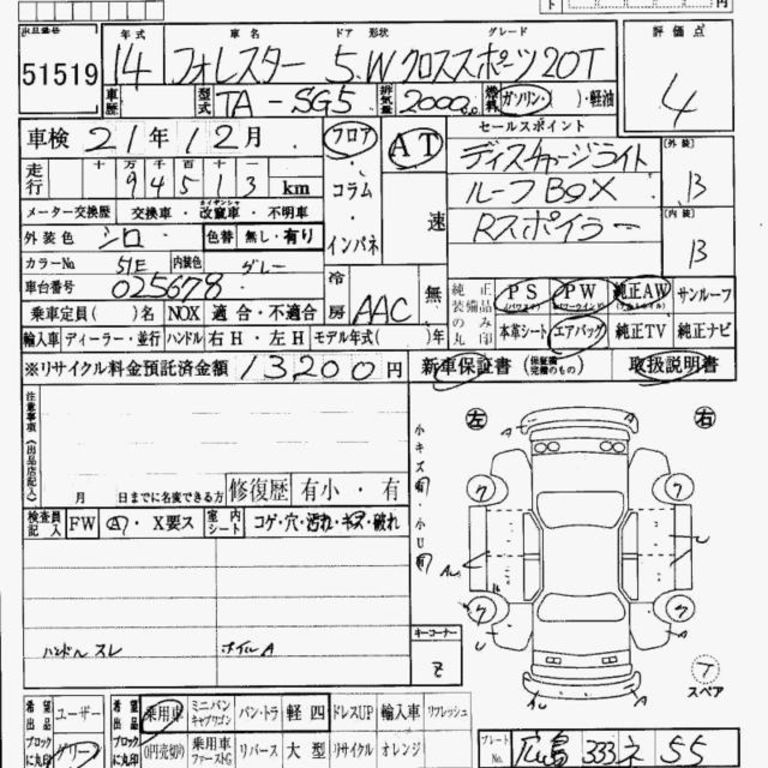 出品番号 年式 車名 ドア 形状 グレード 評価点
51519 14 フォレスター 5.W クロススポーツ20T 4
車歴 型式 TA-SG5 排気量 2000 燃料 ガソリン・( )・軽油
車検 21年12月 フロア・コラム・インパネ AT セールスポイント
走行 十 万 千 百 十 一 94513 km 速 ディスチャージライト [外装] B
メーター交換歴 交換車・改竄車・不明車 ルーフBOX
外装色 シロ 色替 無し・有り Rスポイラー [内装] B
カラーNo 51E 内装色 グレー
車台番号 025678 冷房 AAC 無 純正装備品のみ丸印 PS (パワステ) PW (パワーウインド) 純正AW (アルミホイル) サンルーフ
乗車定員( )名 NOX 適合・不適合 本革シート エアバッグ 純正TV 純正ナビ
輸入車 ディーラー・並行 ハンドル 右H・左H モデル年式( )年
※リサイクル料金預託済金額 13200円 新車保証書 (保証欄完備のもの) 取扱説明書
注意事項(出品店記入)
月 日までに名変できる方 修復歴 有小・有
小キズ有・小U有
左 右
検査員記入 FW A・X要ス 室内シート コゲ・穴・汚れ・キズ・破れ
A A
ワ ワ
U
ワ ワ
U A
ハンドル スレ ホイルA
キーコーナー
Z
A
スペア
希望出品ブロックに丸印 ユーザー グリーン
希望出品ブロックに丸印 乗用車 ミニバンキャブワゴン バン・トラ 軽四 ドレスUP 輸入車 リフレッシュ
0円売切り 乗用車ファーストG リバース 大型 リサイクル オレンジ
プレートNo 広島 333 ネ 55